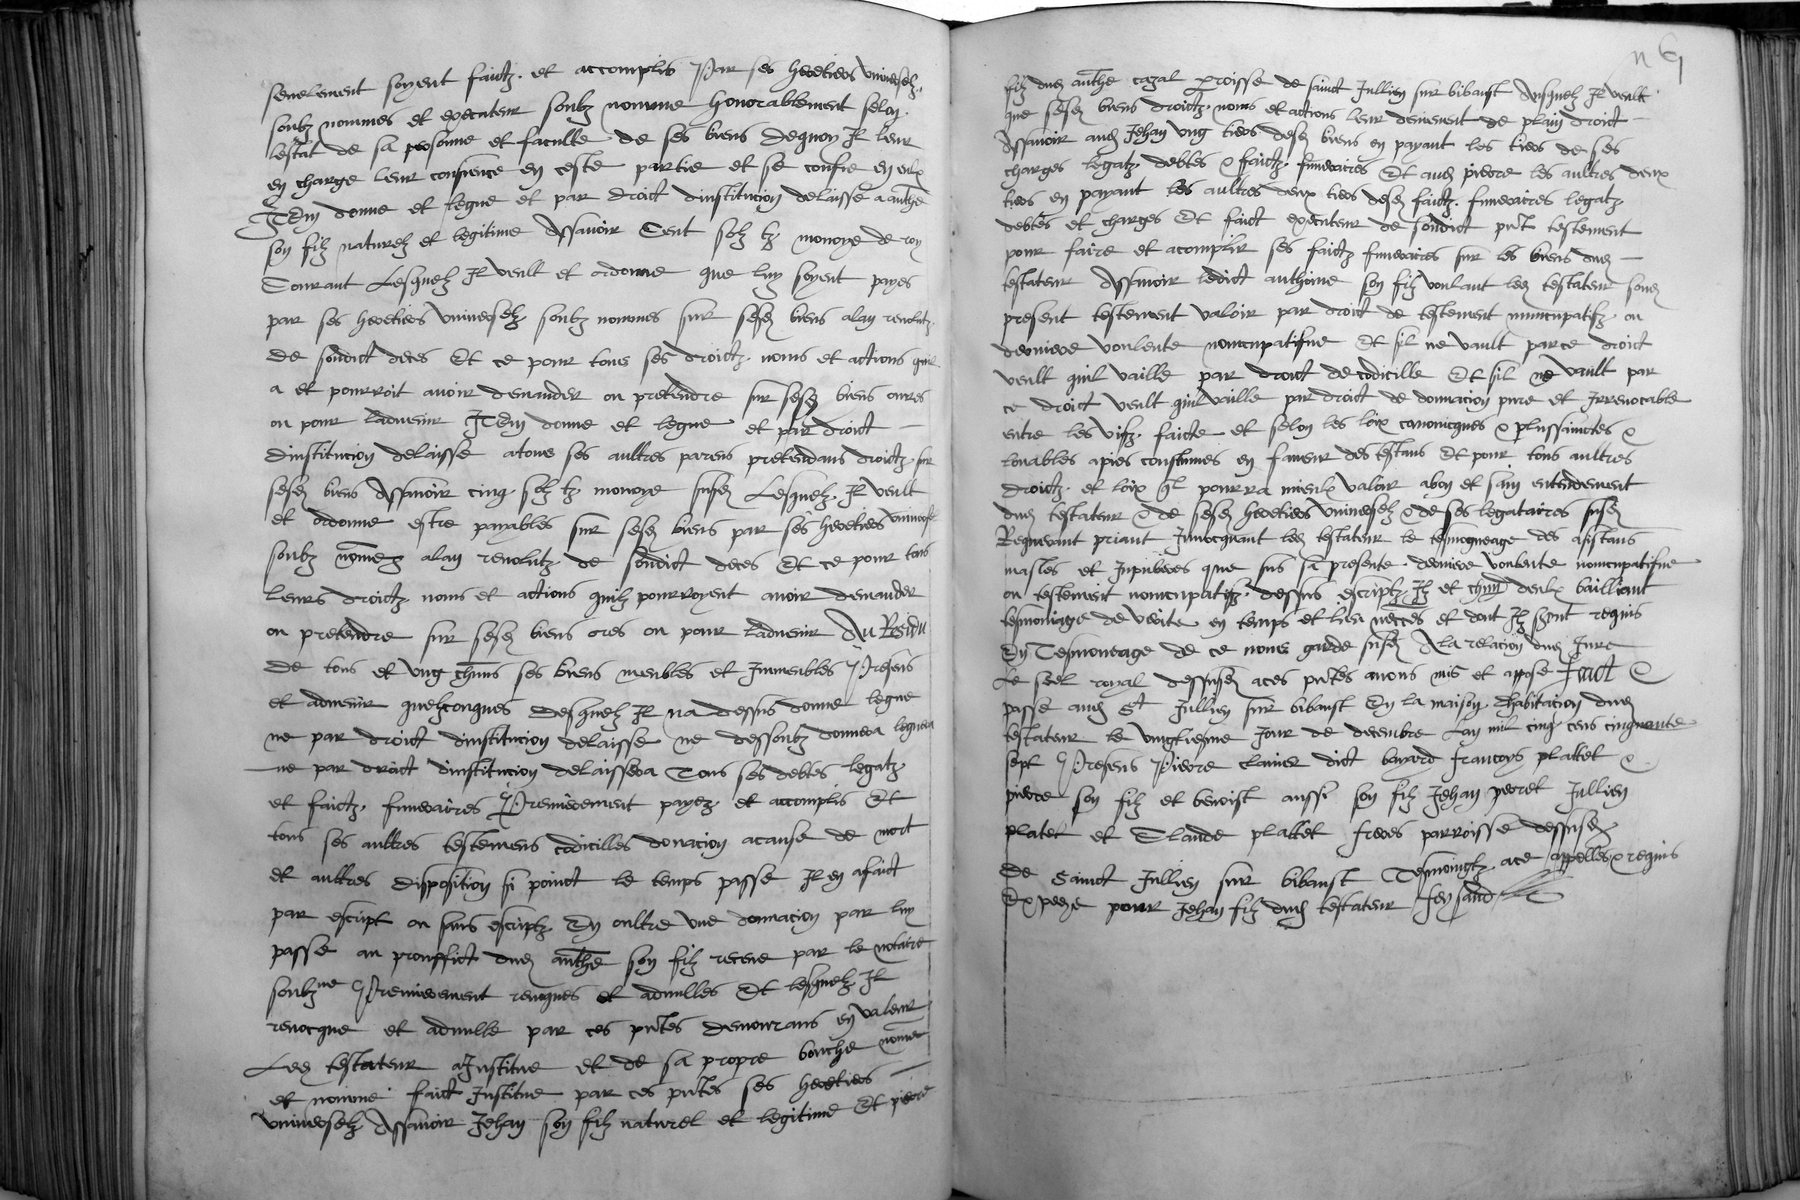 semelement soyent faictz et accomplis Par ses heretiers universelz
soubz nommes et executeur soubz nomme honorablement selon
lestat de sa personne et faculte de ses biens dequoy Il leur
en charge leur consience en ceste partie et se confie en eulx
Item donne et legue et par droict dinstitucion delaisse a anthe
son filz naturelz et legitime Assavoir Cent solz tz monoye de roy
Courant Lesquelz Il veult et ordonne que luy soyent payes
par ses heretiers universelz soubz nommes sur sesd biens alan revolutz
de sondict deces Et ce pour tous ses droictz noms et actions quil
a et pourroit avoir demander ou pretendre sur sesd biens ores
ou pour ladvenir Item donne et legue et par droict
dinstitucion delaisse a tous ses aultres parens pretendans droictz sur
sesd biens Assavoir cinq solz tz monoye susd Lesquelz Il veult
et ordonne estre payables sur sesd biens par ses heretiers universelz
soubz nommez alan revolutz de sondict deces Et ce pour tous
leurs droictz noms et actions quilz pourroyent avoir demander
ou pretendre sur sesd biens ores ou pour ladvenir Au Residu
de tous et ung chuns ses biens meubles et Immeubles Presens
et advenir quelzconques Desquelz Il na dessus donne legue
ne par droict dinstitucion delaisse ne dessoubz donnera leguera
ne par droict dinstitucion delaissera Tous ses debtes legatz
et faictz funeraires Premierement payez et accomplis Et
tous ses aultres testemens codicilles donacion a cause de mort
et aultres disposition si poinct le temps passe Il en a faict
par escript ou sans escriptz En oultre une donnacion par luy
passe au prouffict dud anthe son filz receue par le notaire
soubzne Premierement revoques et adnulles Et lesquelz Il
revocque et adnulle par ces pntes demourans en valeur
Led testateur a Institue et de sa propre bouche nomme
et nomme faict Institue par ces pntes ses heretiers
universelz Assavoir Jehan son filz naturel et legitime Et pierre
filz dud anthe cazal parroisse de sainct Jullien sur bibaust Ausquelz Il veult
que sesd biens droictz noms et actions leur demeurent de plain droict
Assavoir aud Jehan ung tiers desd biens en payant les tiers de ses
charges legatz debtes & faictz funeraires Et aud pierre les aultres deux
tiers en payant les aultres deux tiers desd faictz funeraires legatz
debtes et charges Et faict executeur de sondict pnt testement
pour faire et acomplir ses faictz funeraires sur les biens dud
testateur Assavoir ledict anthoine son filz voulant led testateur sond
present testement valoir par droict de testement nuncupatifz ou
derniere voulente noncupatifue Et sil ne vault par ce droict
veult quil vaille par droict de codicille Et sil ne vault par
ce droict veult quil vaille par droict de donnacion pure et Irrevocable
entre les vifz faicte et selon les loix canonicques & plussainctes &
louables apres coustumes en faveur des testans Et pour tous aultres
droictz et loix ql pourra mieulx valoir a bon et sain entendement
dud testateur & de sesd heretiers universelz & de ses legataires susd
Requerant priant Invocquant led testateur le tesmoigneage des assistans
masles et Inpuberes que sus sa presente derniere voulente noncupatifue
ou testement noncupatifz dessus escriptz Ilz et chun deulx bailliant
tesmoniage de verite en temps et lieu necces et dont Ilz seront requis
En Tesmoneage de ce nous garde susd A la relacion dud Jure
Le seel royal dessusd a ces pntes avons mis et appose Faict &
passe aud St Jullien sur bibaust En la maison dhabitacion dud
testateur le vingtiesme Jour de decembre Lan mil cinq cens cinquante
sept Presens Pierre clavier dict bayard francoys plattet &
pierre son filz et benoist aussi son filz Jehan perret Jullien
platet et Claude plattet freres parroisse dessusd
de sainct Jullien sur bibaust Tesmoingtz a ce appelles & requis
Expeye pour Jehan filz dud testateur